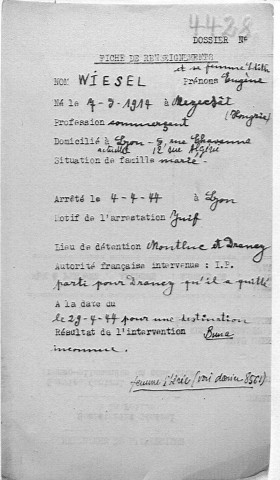 4428
DOSSIER N°
FICHE DE RENSEIGNEMENTS
et sa femme Edith
NOM WIESEL Prénoms Eugène
Né le 7-3-1914 à
(Hongrie)
Profession commerçant
Domicilié à Lyon - 9, rue Chavanne
actuelt 12 rue
Situation de famille marié -
Arrêté le 4-4-44 à Lyon
Motif de l'arrestation Juif
Lieu de détention Montluc et Drancy
Autorité française intervenue : I.P.
parti pour Drancy qu'il a quitté
A la date du
le 29-4-44 pour une destination
Résultat de l'intervention
inconnue.
femme (voir dossier 8561)